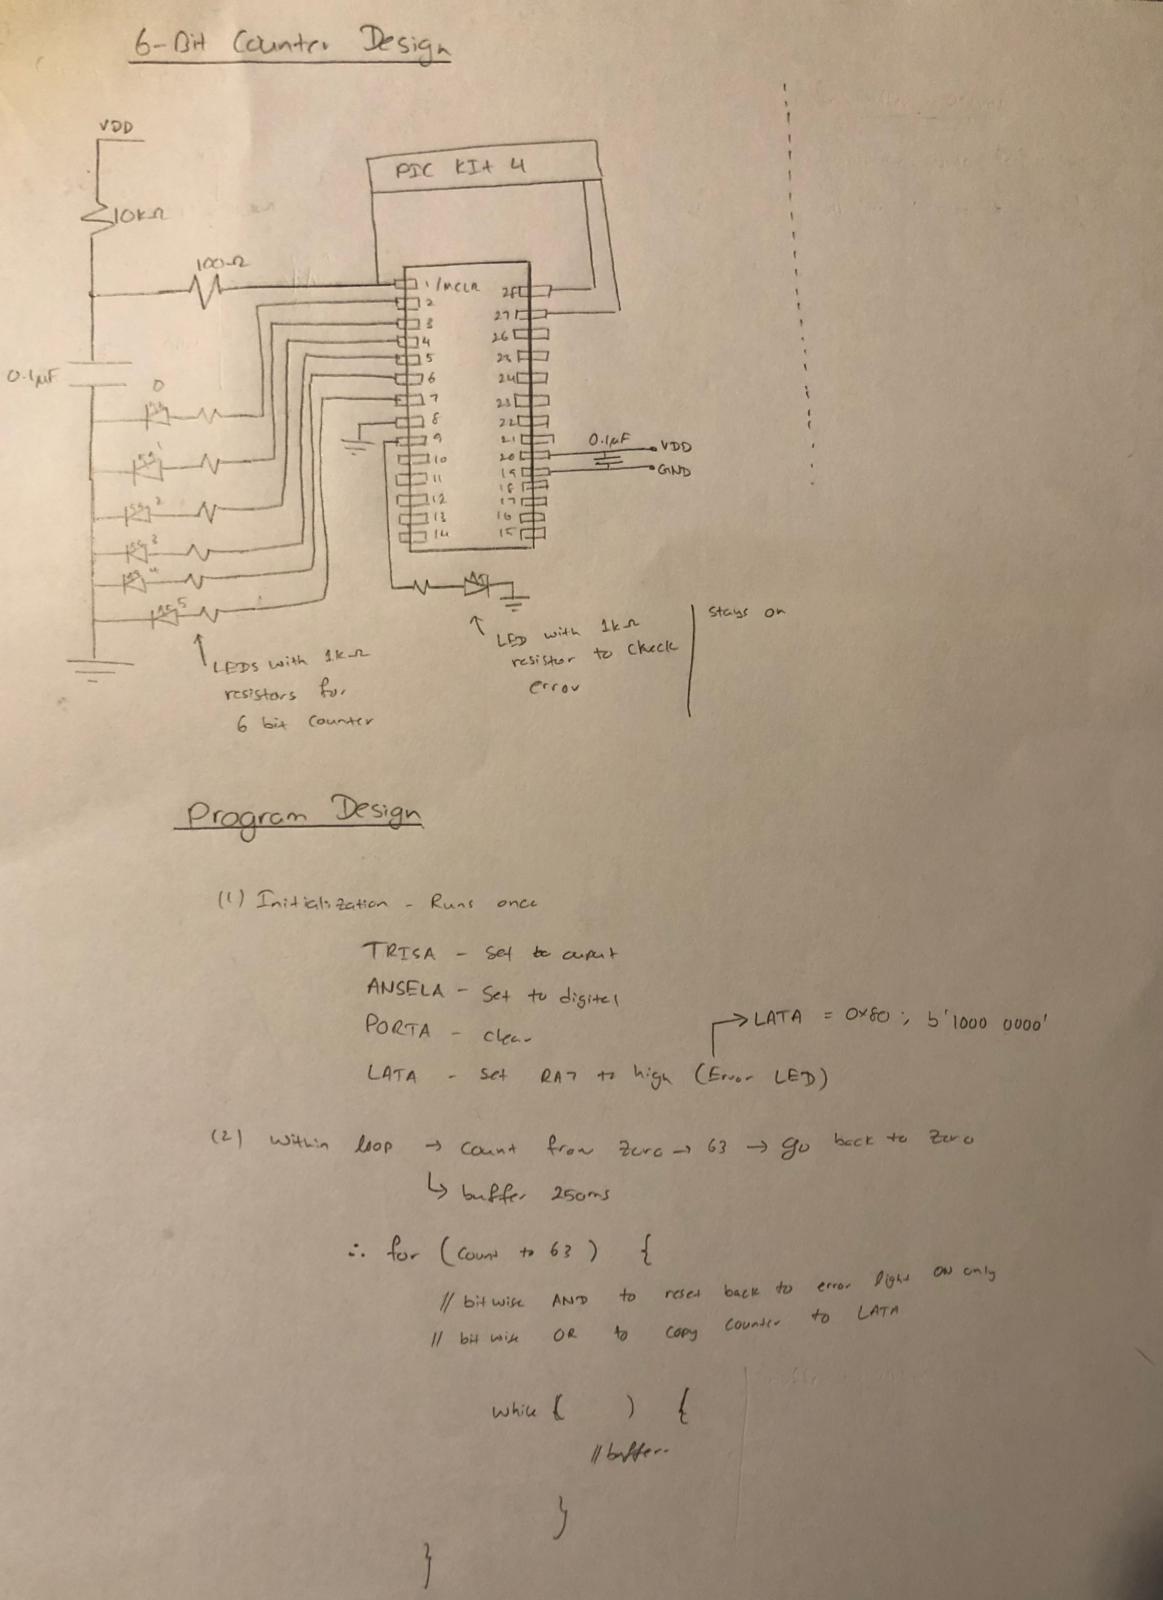 6-Bit Counter Design
VDD
10kΩ
100Ω
0.1µF
PIC Kit 4
1/MCLR
2
3
4
5
6
7
8
9
10
11
12
13
14
28
27
26
25
24
23
22
21
20
19
18
17
16
15
0.1µF
VDD
GND
0
1
2
3
4
5
LEDs with 1kΩ
resistors for
6 bit counter
LED with 1kΩ
resistor to check
error
stays on
Program Design
(1) Initialization - Runs once
TRISA - Set to ouput
ANSELA - Set to digital
PORTA - clear
LATA - set RA7 to high (Error LED)
→ LATA = 0x80; b'1000 0000'
(2) Within loop → count from zero → 63 → go back to zero
↳ buffer 250ms
∴ for (count to 63) {
// bitwise AND to reset back to error light ON only
// bit wise OR to copy counter to LATA
while ( ) {
// buffer
}
}